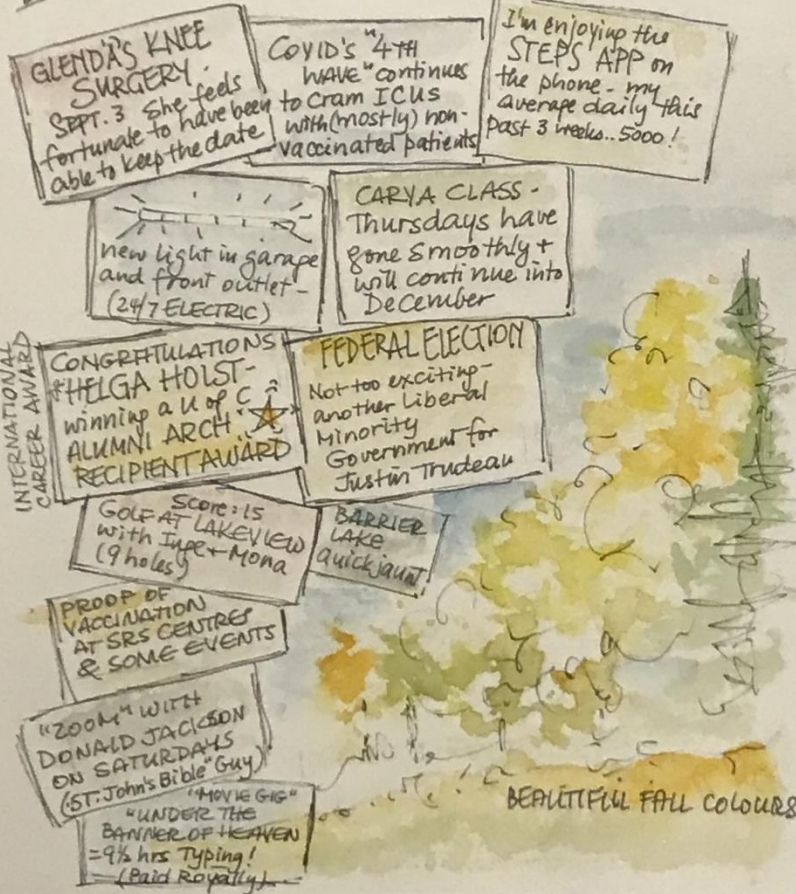 GLENDA'S KNEE
SURGERY.
SEPT. 3 She feels
fortunate to have been
able to keep the date
COVID'S "4TH
WAVE" continues
to cram ICUs
with (mostly) non-
vaccinated patients
I'm enjoying the
STEPS APP on
the phone - my
average daily this
past 3 weeks.. 5000!
new light in garage
and front outlet -
(24/7 ELECTRIC)
CARYA CLASS -
Thursdays have
gone smoothly +
will continue into
December
INTERNATIONAL
CAREER AWARD
CONGRATULATIONS
HELGA HOLST -
winning a U of C
ALUMNI ARCH
RECIPIENT AWARD
FEDERAL ELECTION
Not too exciting -
another Liberal
Minority
Government for
Justin Trudeau
Score: 15
GOLF AT LAKEVIEW
with Inge + Mona
(9 holes)
BARRIER
LAKE
quick jaunt
PROOF OF
VACCINATION
AT SRS CENTRES
& SOME EVENTS
"ZOOM" WITH
DONALD JACKSON
ON SATURDAYS
(ST. John's Bible" Guy)
"MOVIE GIG"
"UNDER THE
BANNER OF HEAVEN
= 9½ hrs Typing!
(Paid Royally)
BEAUTIFUL FALL COLOURS